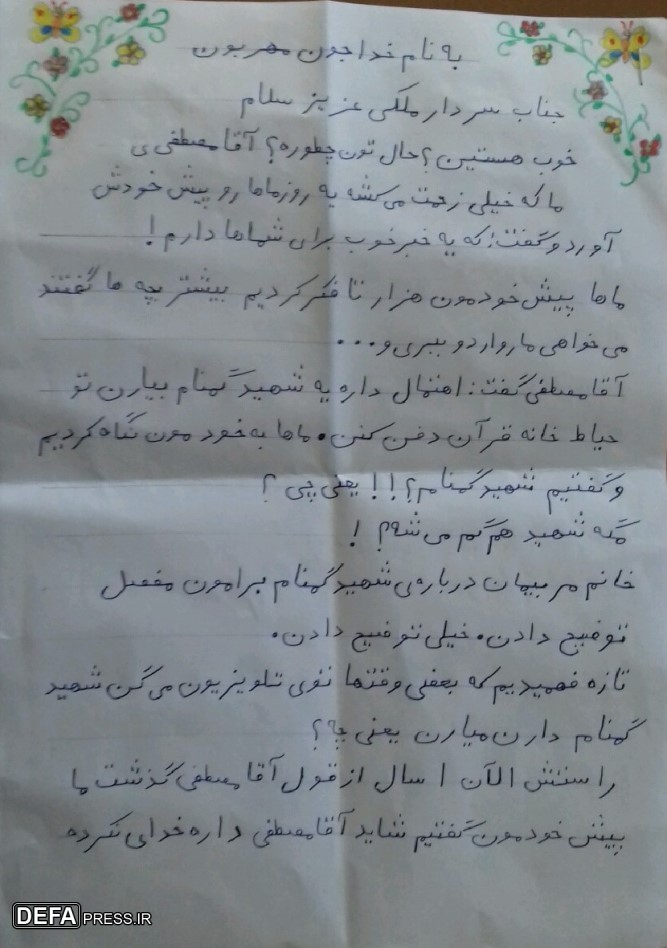 به نام خداجون مهربون
جناب سردار ملکی عزیز سلام
خوب هستین؟ حال تون چطوره؟ آقا مصطفی ی
ما که خیلی زحمت می کشه یه روز ماها رو پیش خودش
آورد و گفت: که یه خبر خوب برای شماها دارم!
ماها پیش خودمون هزار تا فکر کردیم بیشتر بچه ها گفتند
می خواهی ما رو اردو ببری و...
آقا مصطفی گفت: احتمال داره یه شهید گمنام بیارن تو
حیاط خانه قرآن دفن کنن. ماها به خودمون نگاه کردیم
و گفتیم شهید گمنام؟!! یعنی چی؟
مگه شهید هم گم می شه؟!
خانم مربیمان درباره ی شهید گمنام برامون مفصل
توضیح دادن. خیلی توضیح دادن.
تازه فهمیدیم که بعضی وقتها توی تلویزیون می گن شهید
گمنام دارن میارن یعنی چه؟
راستش الآن ۱ سال از قول آقا مصطفی گذشت ما
پیش خودمون گفتیم شاید آقا مصطفی داره خدای نکرده
DEFAPRESS.IR